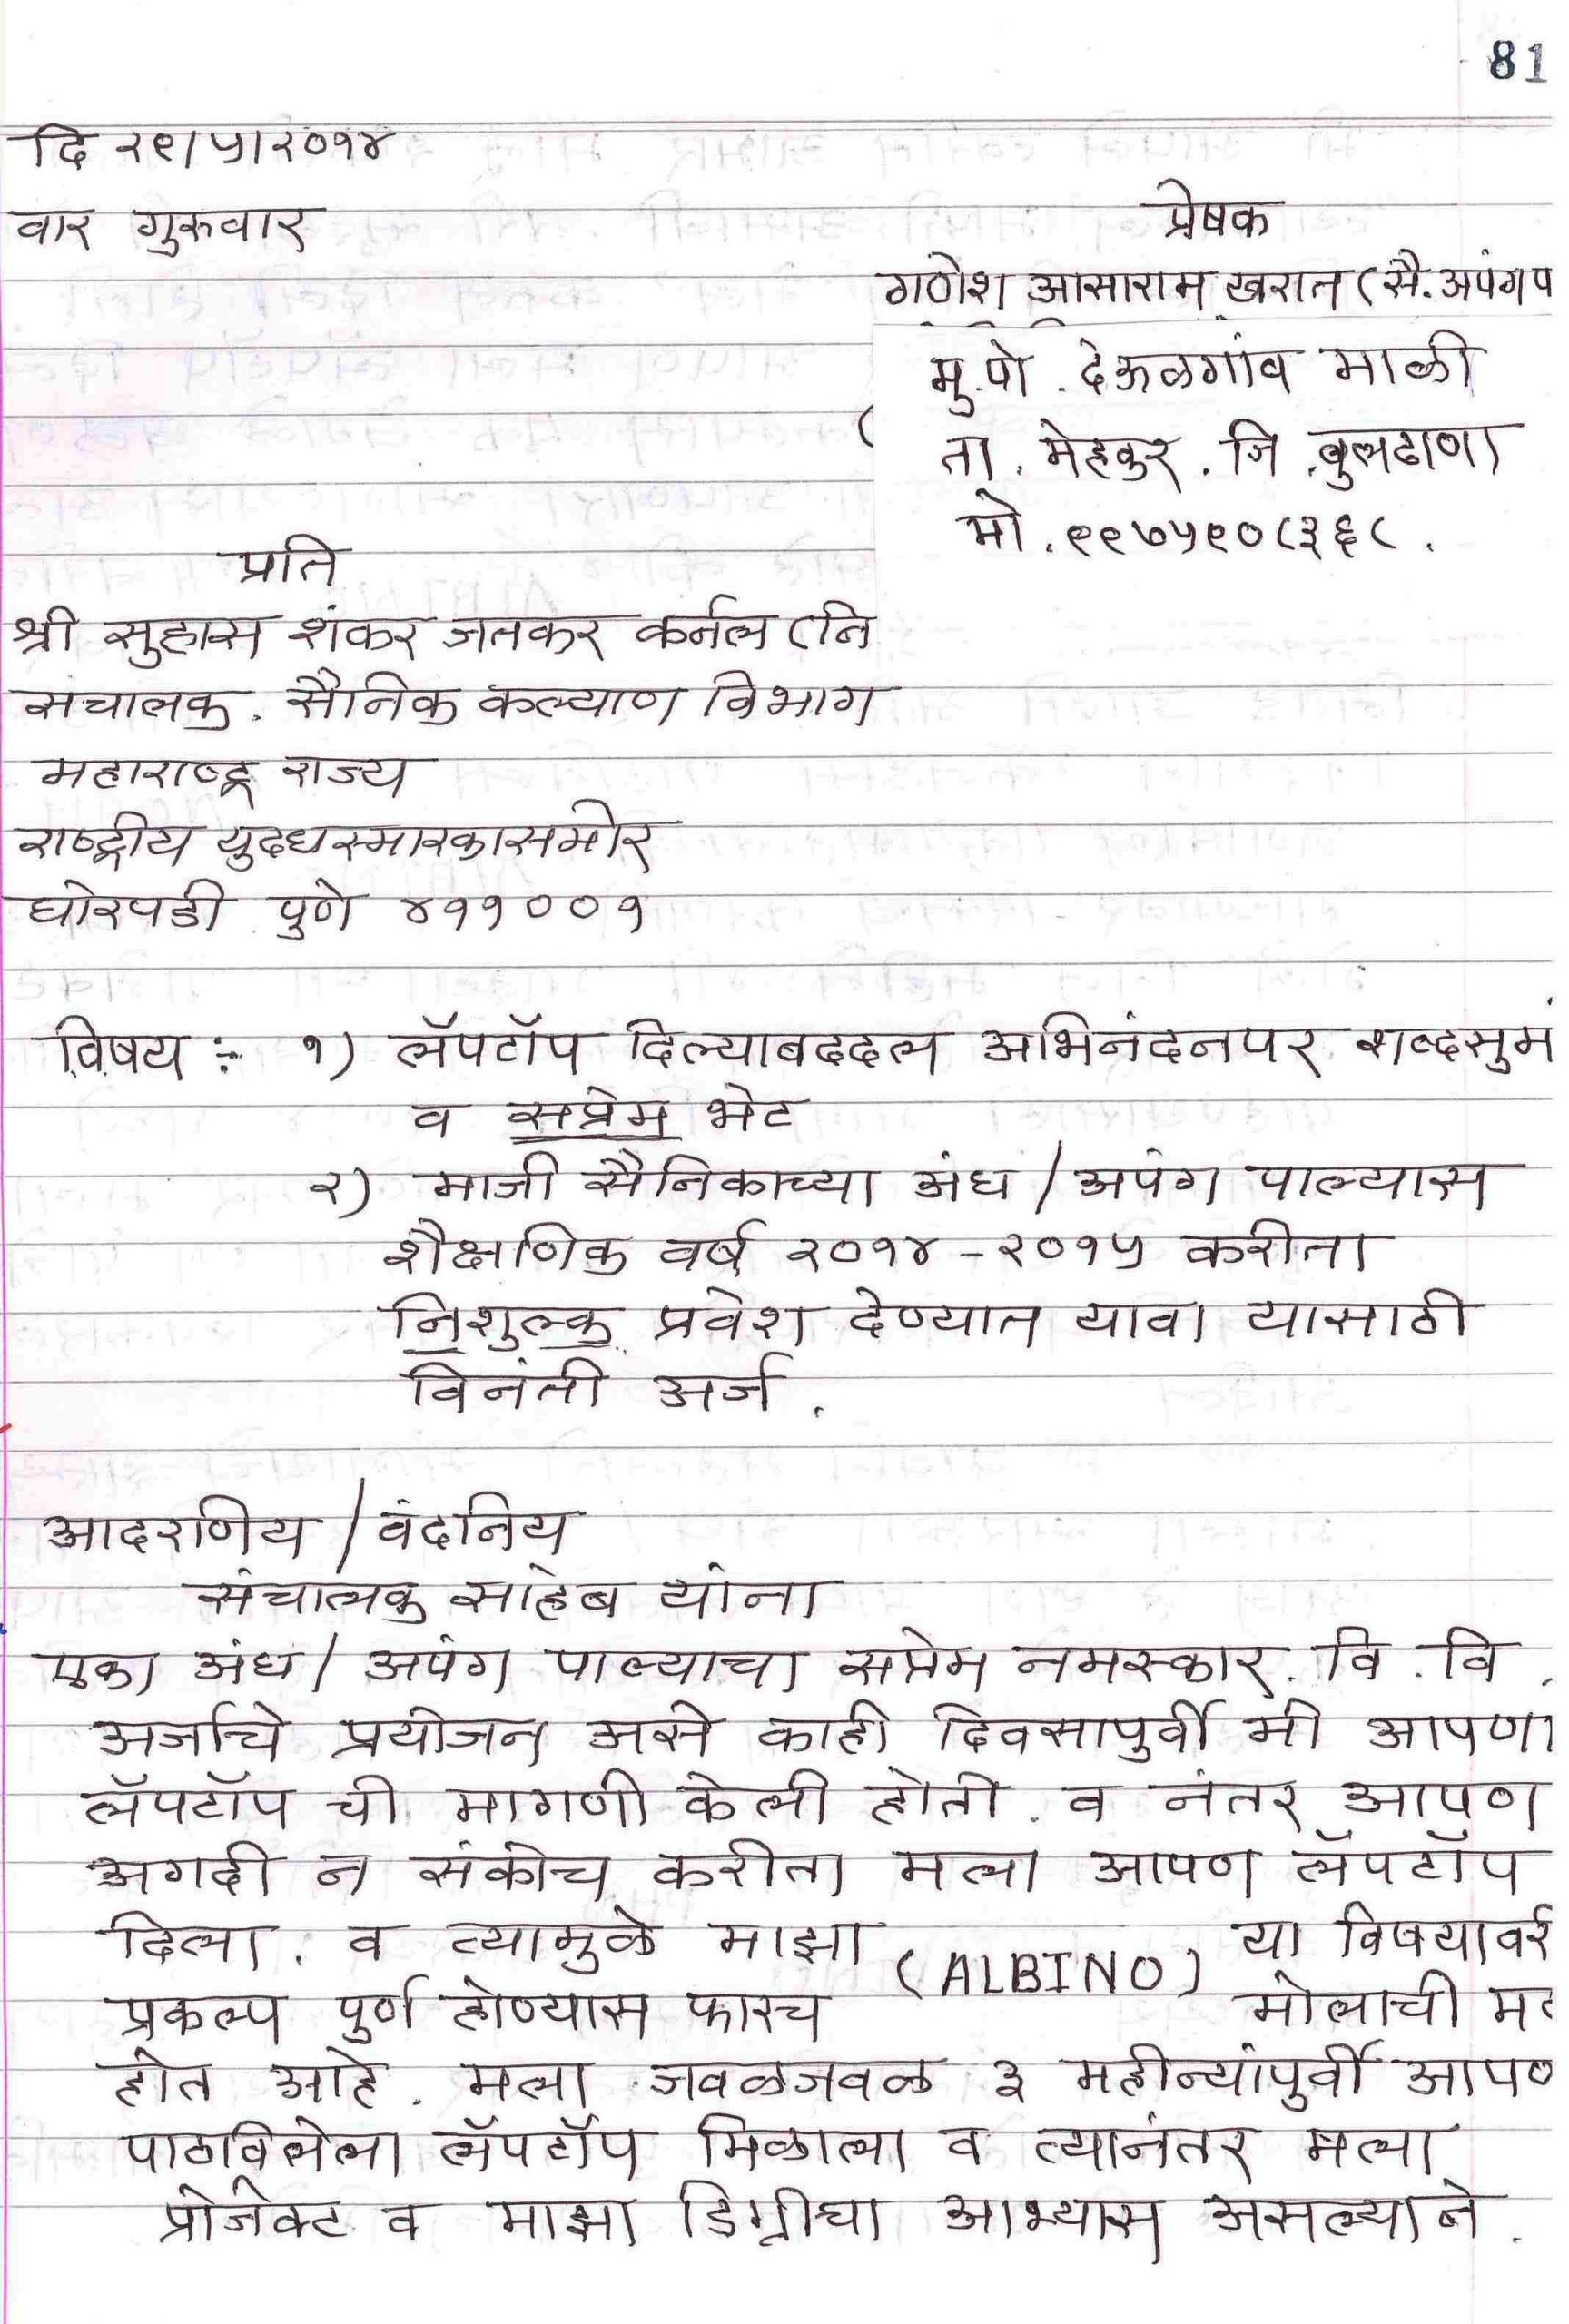 81
दि २९।५।२०१४
वार गुरुवार
प्रेषक
गणेश आसाराम खरात (सै. अपंग प
मु.पो. देऊळगांव माळी
ता. मेहकुर. जि. बुलढाणा
मो. ९९७५९०८३६८.
प्रति
श्री सुहास शंकर जतकर कर्नल (नि
संचालक. सैनिक कल्याण विभाग
महाराष्ट्र राज्य
राष्ट्रीय युद्धस्मारकासमोर
घोरपडी पुणे ४११००१
विषय :- १) लॅपटॉप दिल्याबददल अभिनंदनपर शब्दसुमं
व सप्रेम भेट
२) माजी सैनिकाच्या अंध / अपंग पाल्यास
शैक्षणिक वर्ष २०१४ - २०१५ करीता
निशुल्क प्रवेश देण्यात यावा यासाठी
विनंती अर्ज.
आदरणिय / वंदनिय
संचालक साहेब यांना
एका अंध / अपंग पाल्याचा सप्रेम नमस्कार. वि. वि.
अर्जाचे प्रयोजन असे काही दिवसापुर्वी मी आपणा
लॅपटॉप ची मागणी केली होती. व नंतर आपण
अगदी न संकोच करीता मला आपण लॅपटॉप
दिला. व त्यामुळे माझा (ALBINO) या विषयावर
प्रकल्प पुर्ण होण्यास फारच मोलाची मद
होत आहे. मला जवळजवळ ३ महीन्यांपुर्वी आपण
पाठविलेला लॅपटॉप मिळाला व त्यानंतर मला
प्रोजेक्ट व माझा डिग्रीचा आभ्यास असल्याने.